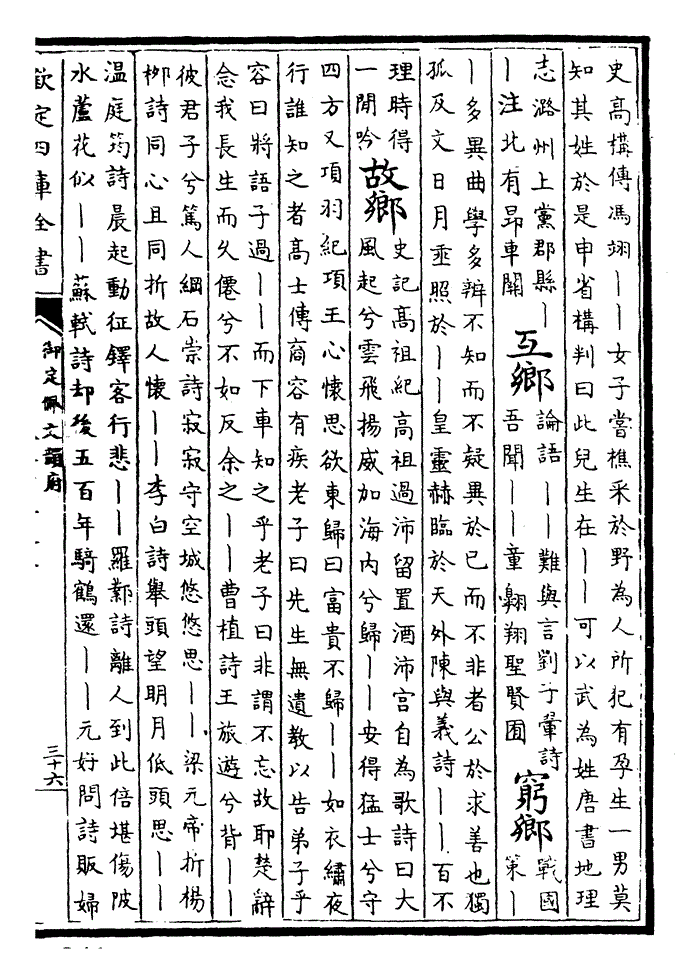 史高搆傳馮翊丨丨女子嘗樵采於野為人所犯有孕生一男莫
知其姓於是申省搆判曰此兒生在丨丨可以武為姓唐書地理
志潞州上黨郡縣丨
丨注北有昂車關
互鄉
論語丨丨難與言劉子翬詩
吾聞丨丨童翺翔聖賢囿
窮鄉
戰國
策丨
丨多異曲學多辨不知而不疑異於已而不非者公於求善也獨
孤及文日月垂照於丨丨皇靈赫臨於天外陳與義詩丨丨百不
理時得
一閒吟
故鄉
史記高祖紀高祖過沛留置酒沛宫自為歌詩曰大
風起兮雲飛揚威加海内兮歸丨丨安得猛士兮守
四方又項羽紀項王心懷思欲東歸曰富貴不歸丨丨如衣繡夜
行誰知之者高士傳商容有疾老子曰先生無遺教以告弟子乎
容曰將語子過丨丨而下車知之乎老子曰非謂不忘故耶楚辭
念我長生而乆僊兮不如反余之丨丨曹植詩王旅遊兮背丨丨
彼君子兮篤人綱石崇詩寂寂守空城悠悠思丨丨梁元帝折楊
栁詩同心且同折故人懷丨丨李白詩舉頭望明月低頭思丨丨
温庭筠詩晨起動征鐸客行悲丨丨羅鄴詩離人到此倍堪傷陂
水蘆花似丨丨蘇軾詩却後五百年騎鶴還丨丨元好問詩販婦
欽定四庫全書
御定佩文韻府
三十六